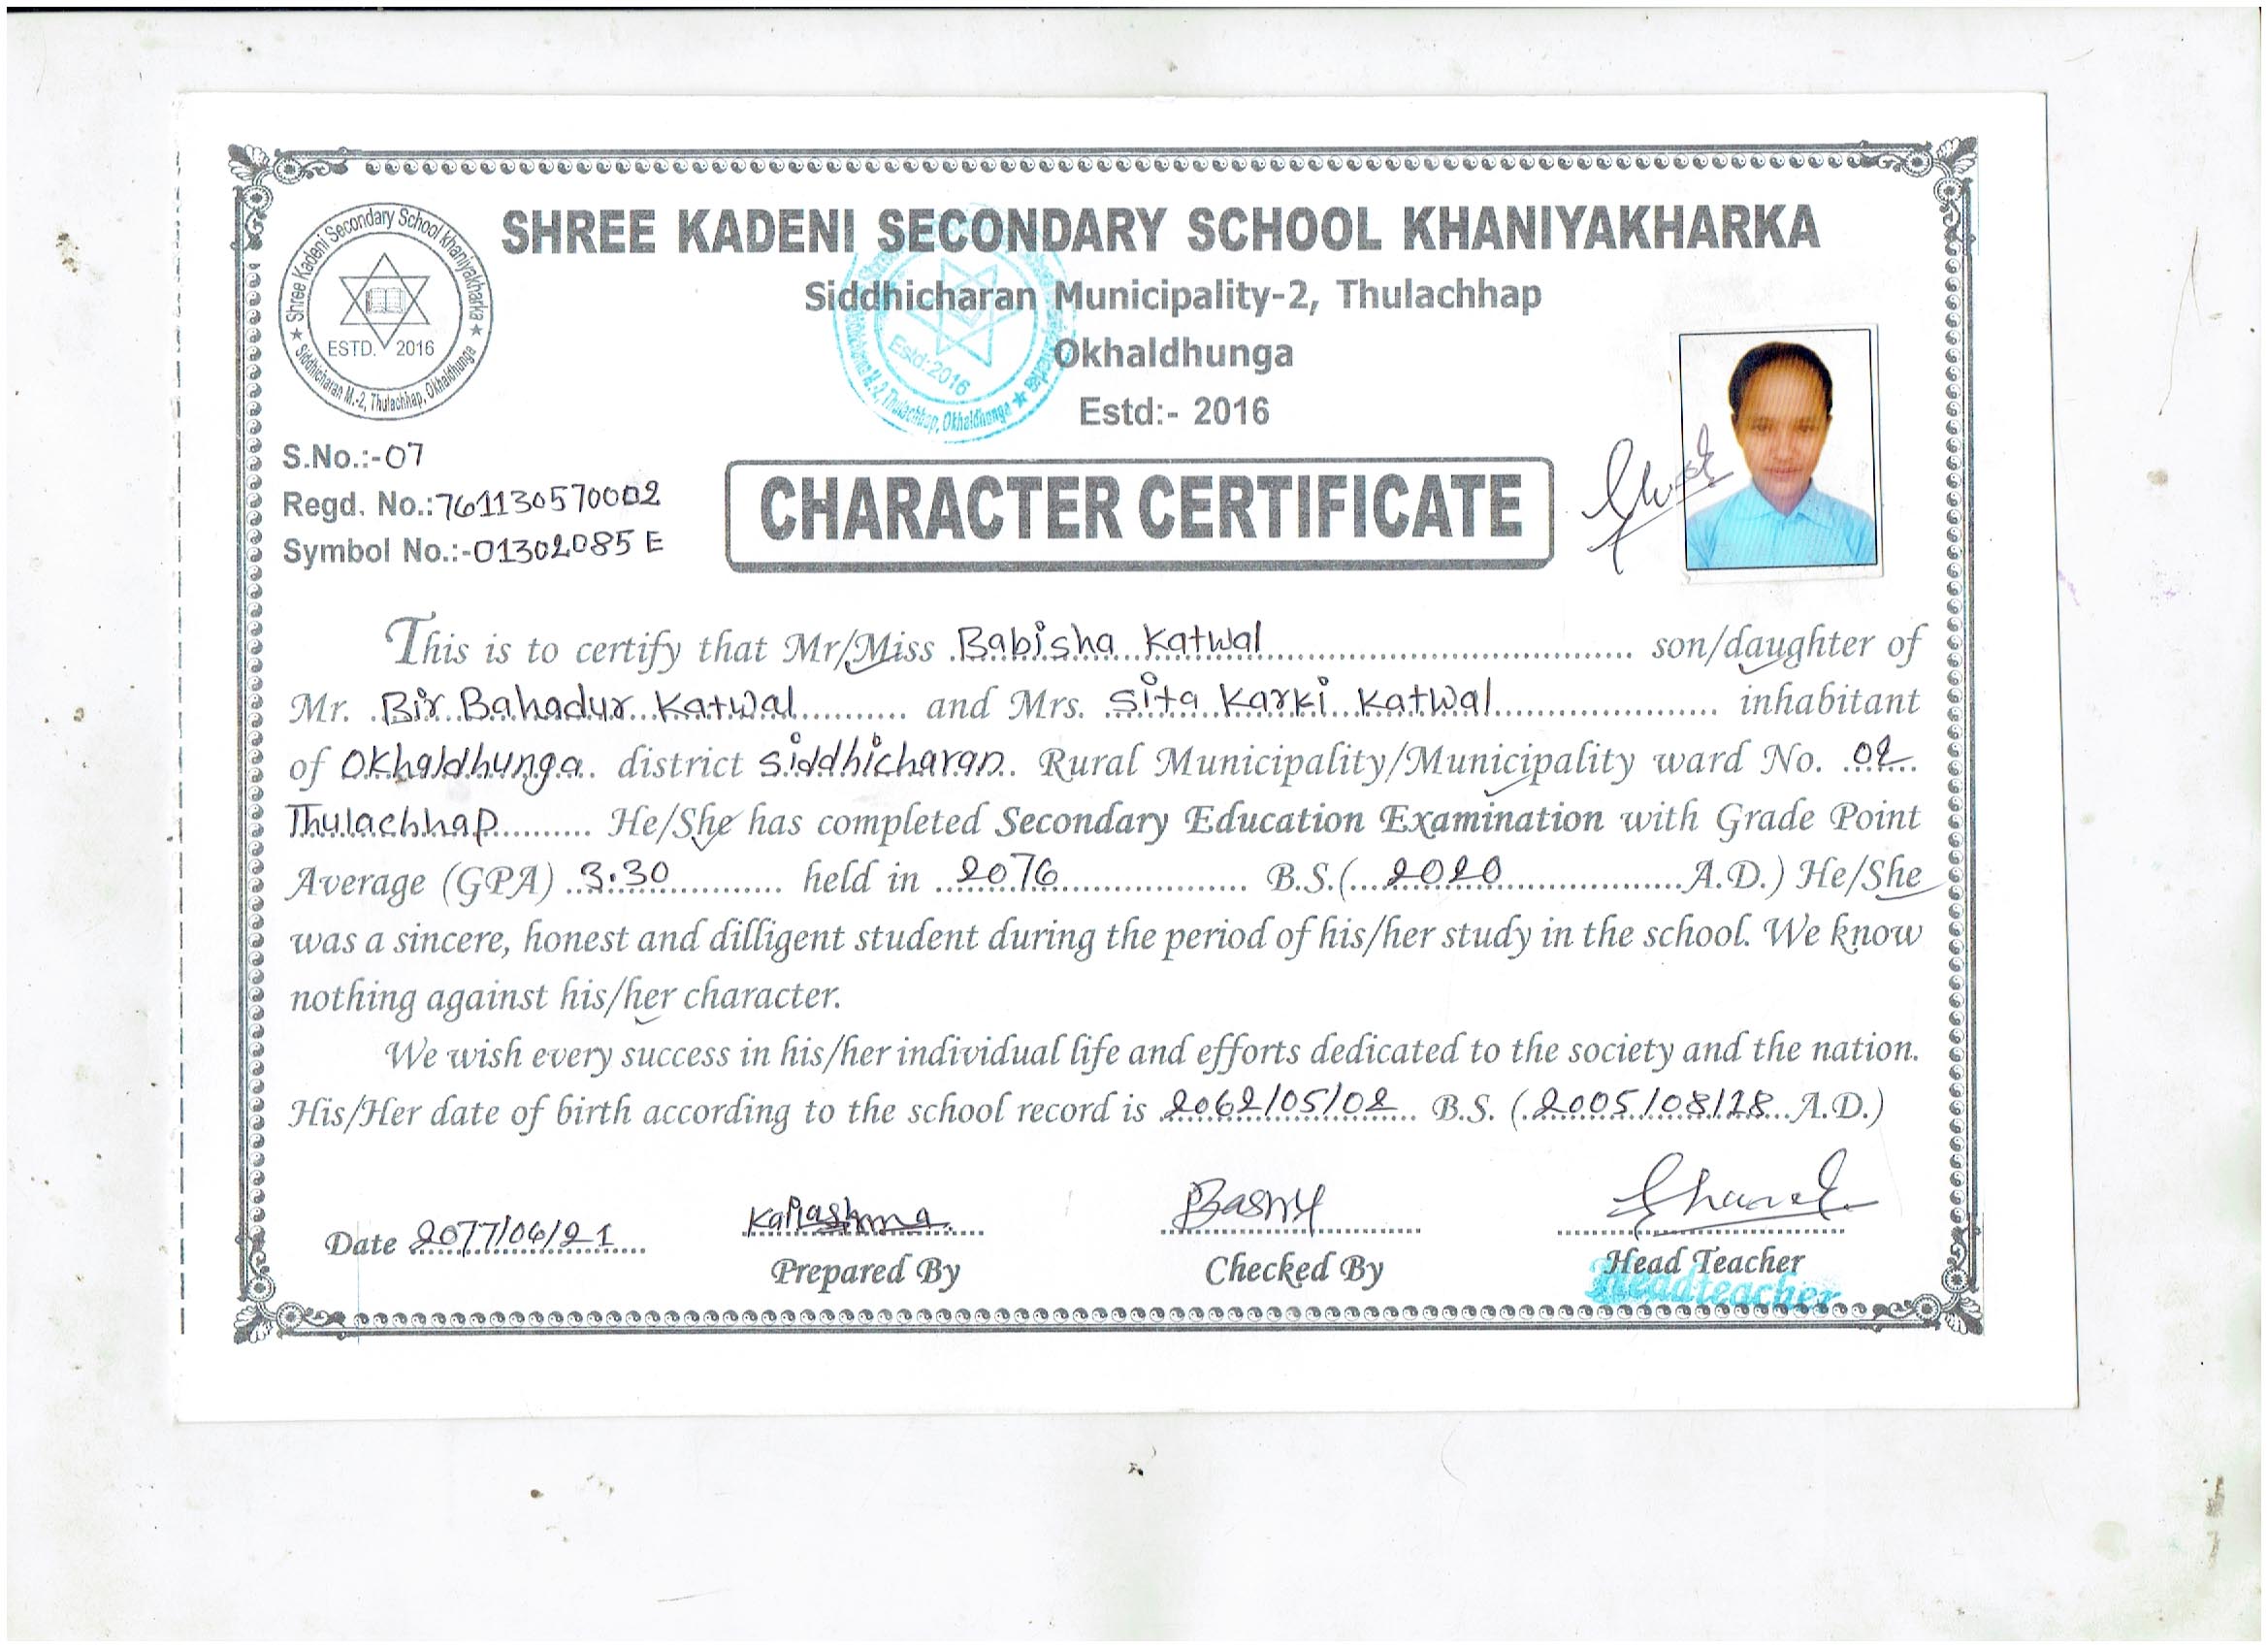 SHREE KADENI SECONDARY SCHOOL KHANIYAKHARKA
Shree Kadeni Secondary School khaniyakharka
ESTD. 2016
★ Siddhicharan M.-2, Thulachhap, Okhaldhunga ★
Siddhicharan Municipality-2, Thulachhap
Okhaldhunga
Estd:- 2016
Estd:2016
M.-2, Thulachhap, Okhaldhunga ★
S.No.:-07
Regd. No.:761130570002
Symbol No.:-01302085 E
CHARACTER CERTIFICATE
This is to certify that Mr/Miss Babisha Katwal son/daughter of
Mr. Bir Bahadur Katwal and Mrs. Sita Karki Katwal inhabitant
of Okhaldhunga district Siddhicharan Rural Municipality/Municipality ward No. 02
Thulachhap He/She has completed Secondary Education Examination with Grade Point
Average (GPA) 3.30 held in 2076 B.S.(2020 A.D.) He/She
was a sincere, honest and dilligent student during the period of his/her study in the school. We know
nothing against his/her character.
We wish every success in his/her individual life and efforts dedicated to the society and the nation.
His/Her date of birth according to the school record is 2062/05/02 B.S. (2005/08/18 A.D.)
Date 2077/06/21
Prepared By
Checked By
Head Teacher
Headteacher